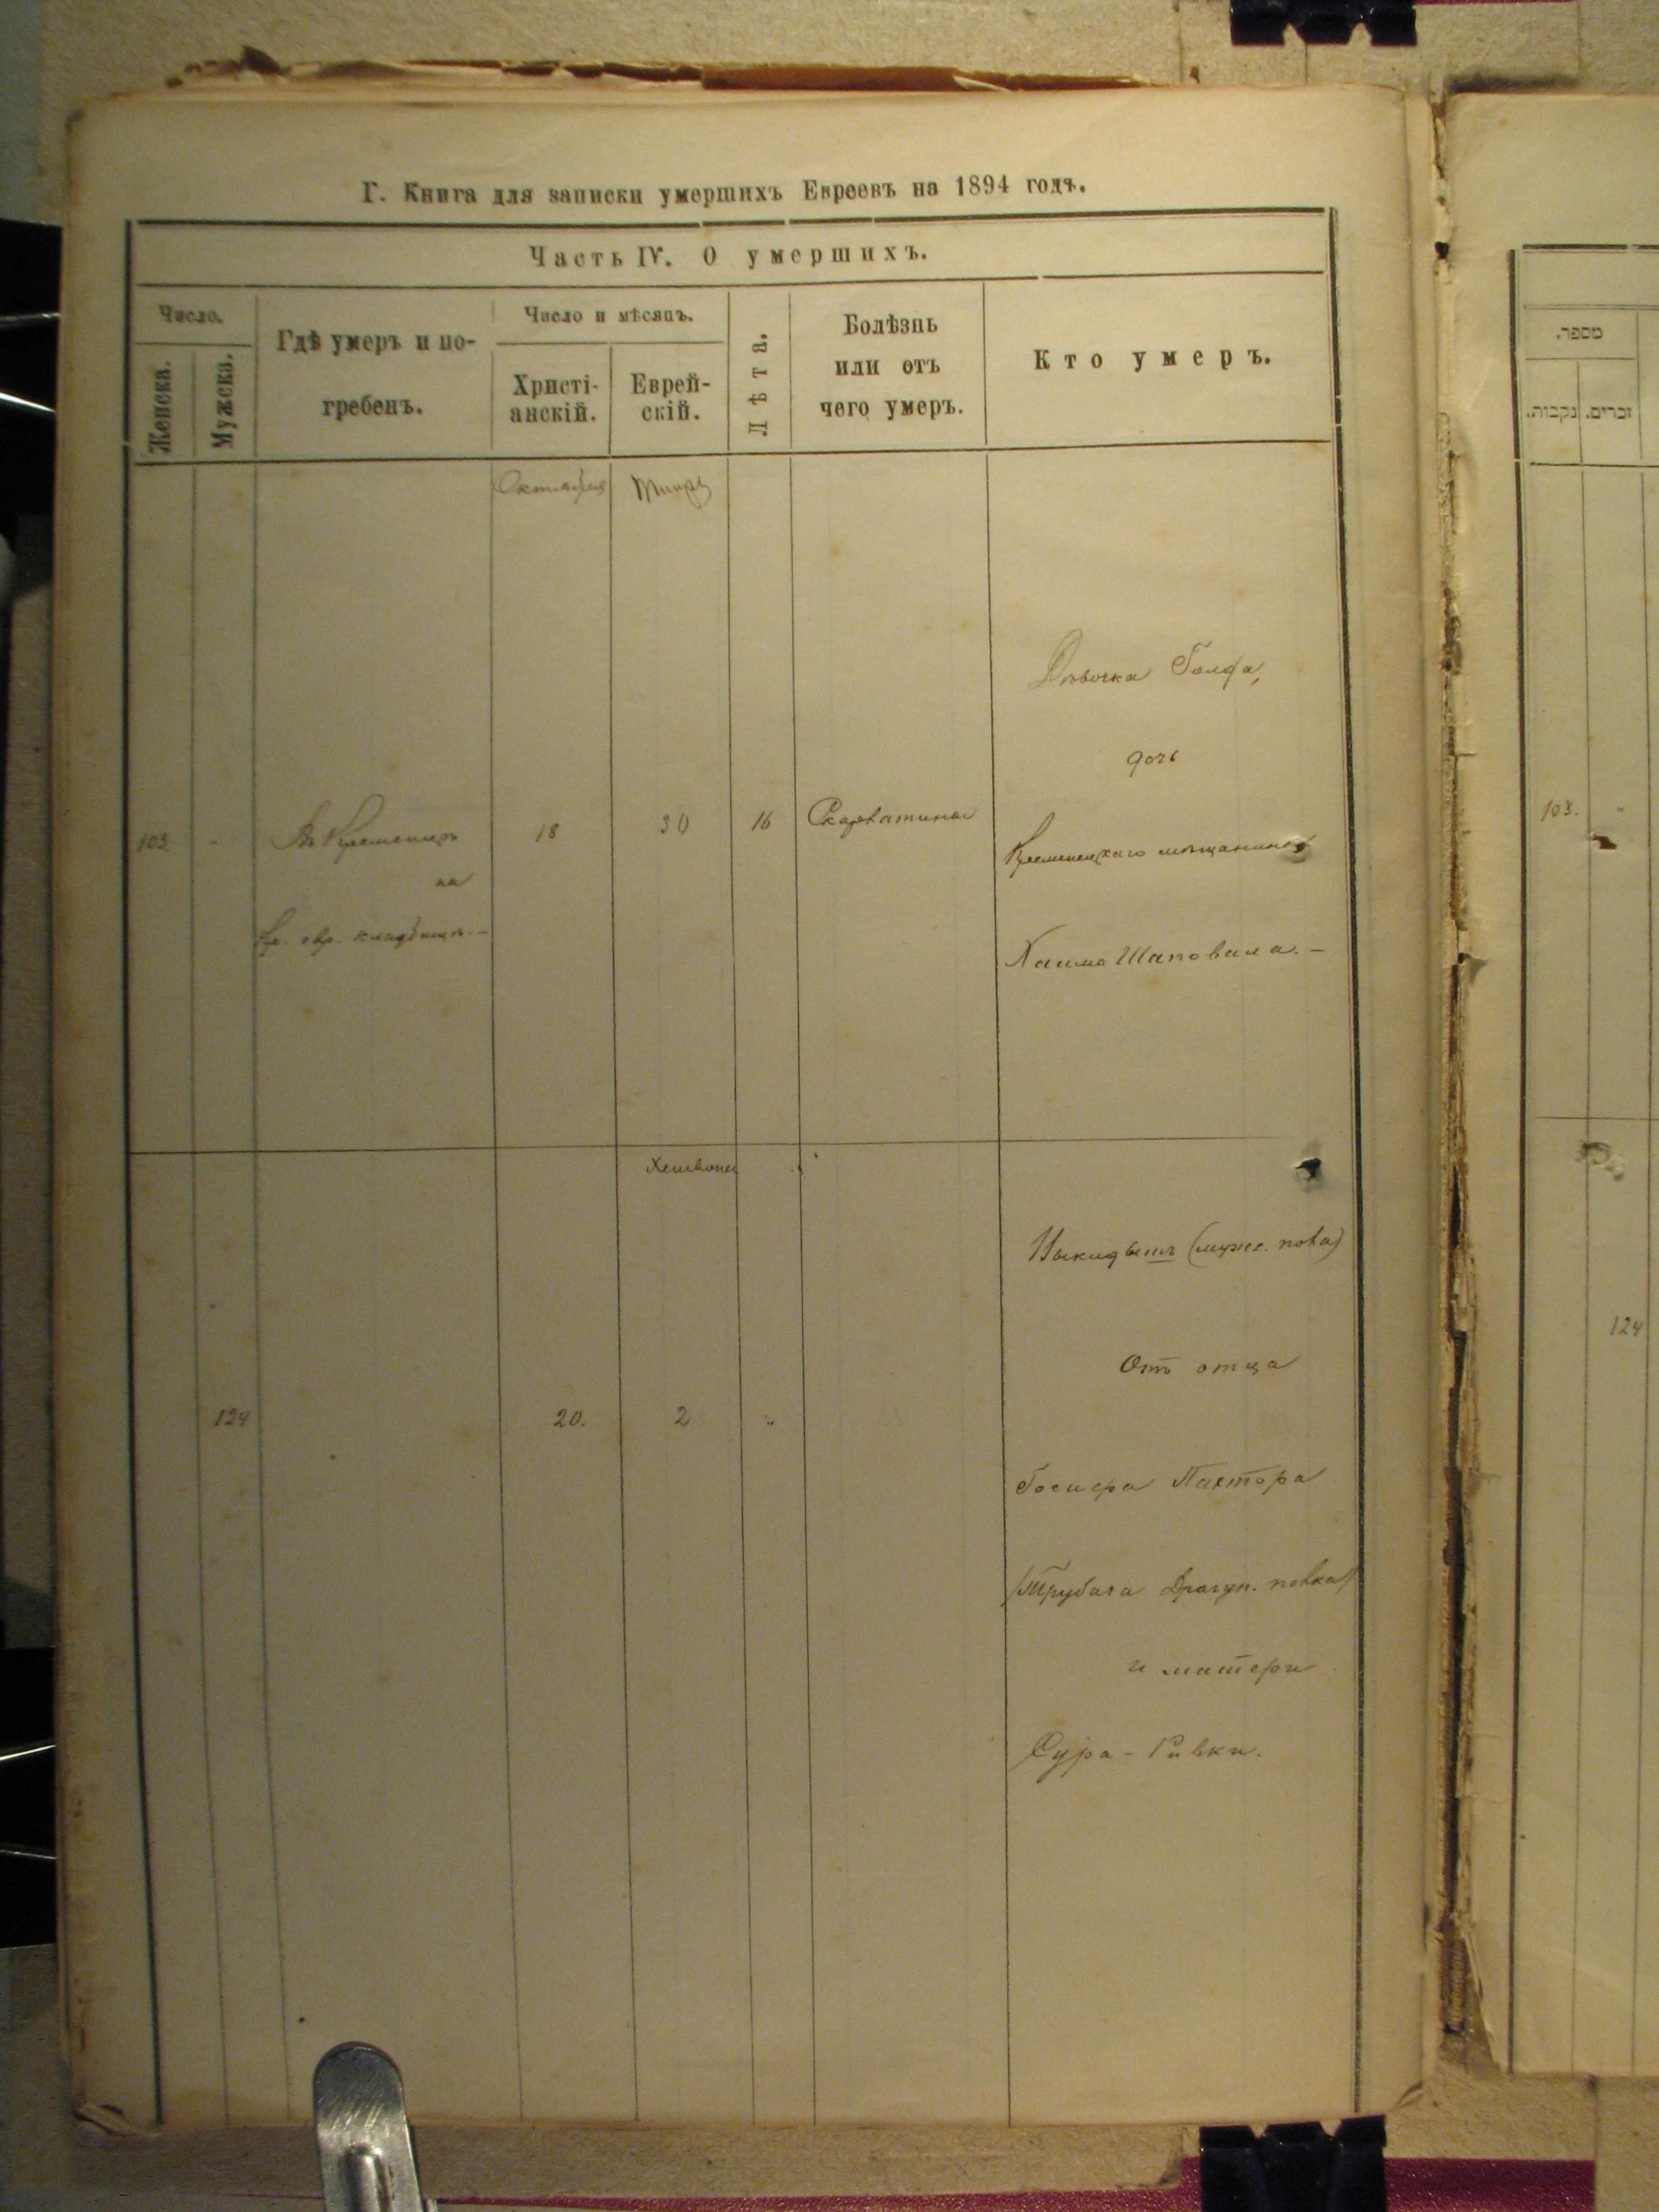 Г. Книга для записки умершихъ Евреевъ на 1894 годъ.
Часть IV. О умершихъ.
Число.
Женска.
Мужска.
Гдѣ умеръ и по-
гребенъ.
Число и мѣсяцъ.
Христі-
анскій.
Еврей-
скій.
Лѣта.
Болѣзнь
или отъ
чего умеръ.
Кто умеръ.
Октября
Дѣвочка
дочь
103. Въ Кременцѣ 18 30 16 Скарлатины
Кременецкаго мѣщанина
на
Кр. евр. кладбищѣ. –
Хаима Шаповала. –
Хешвона
Выкидышъ (мужс. пола)
Отъ отца
124 20. 2 "
Пастора
(Трубача Драгун. полка)
и матери
Сура - Ривки.
מספר.
נקבות.
זכרים.
103. "
124